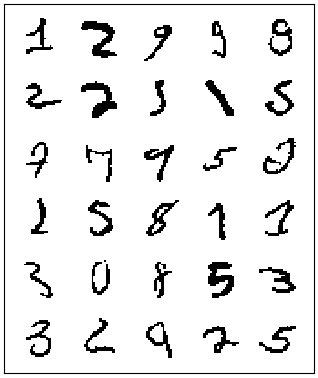 1 2 9 9 8
2 2 3 1 5
7 7 9 5 2
1 5 8 1 1
3 0 8 5 3
3 2 9 2 5